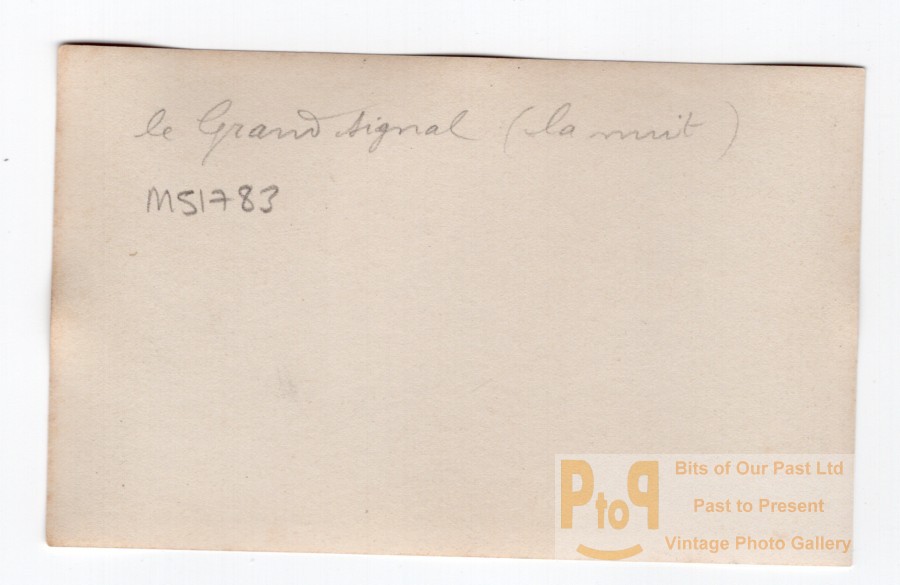 le Grand signal (la nuit)
M51783
PtoP
Bits of Our Past Ltd
Past to Present
Vintage Photo Gallery